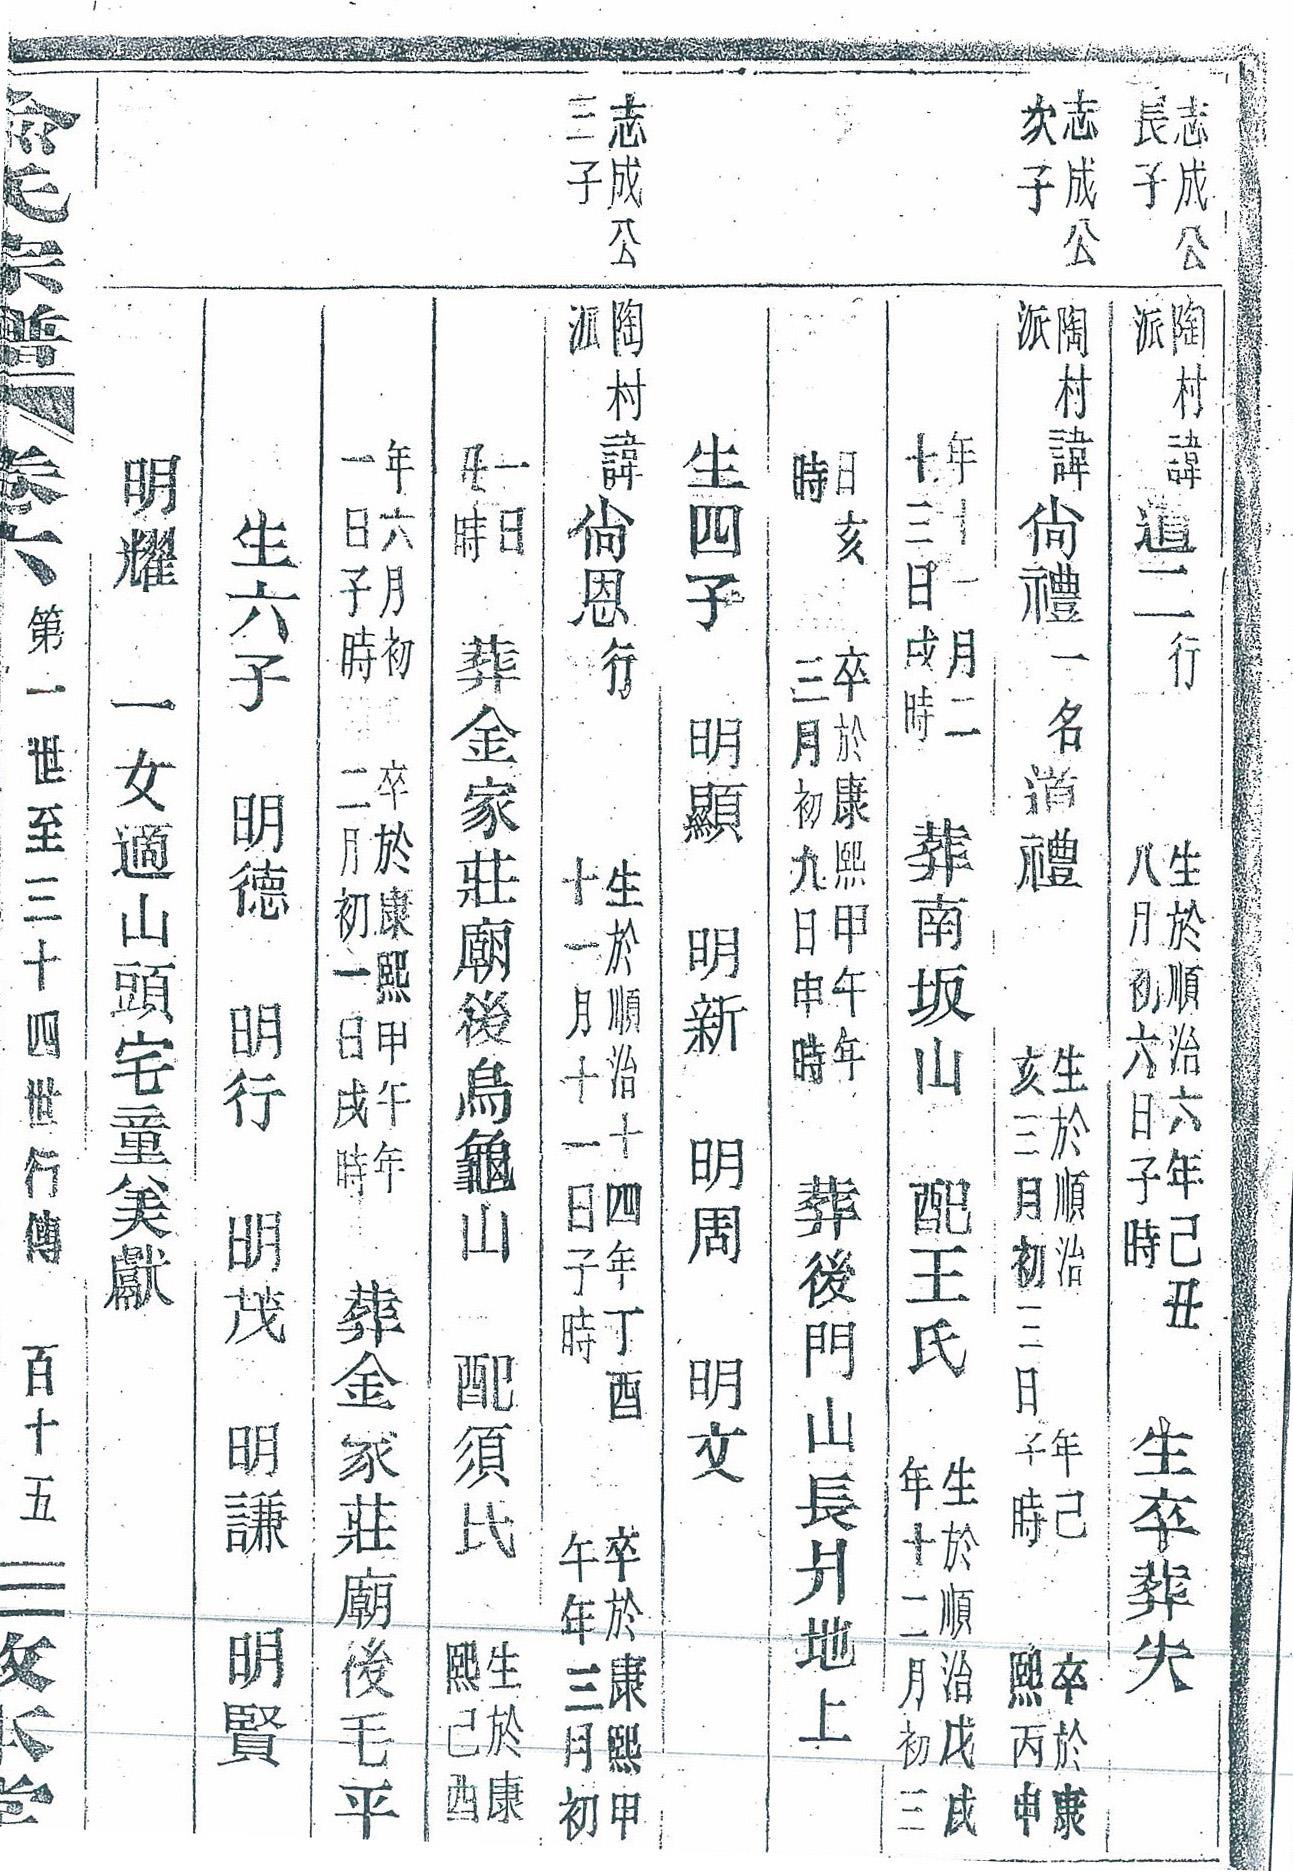 志成公長子
陶村派諱道二行 生於順治六年己丑八月初六日子時 生卒葬失
志成公次子
陶村派諱尙禮一名道禮 生於順治年己亥三月初三日子時 卒於康熙丙申
年十一月二十三日戌時 葬南坂山 配王氏 生於順治戊戌年十二月初三
日亥時 卒於康熙甲午年三月初九日申時 葬後門山長爿地上
生四子 明顯 明新 明周 明文
志成公三子
陶村派諱尙恩行 生於順治十四年丁酉十一月十一日子時 卒於康熙甲午年三月初
一日丑時 葬金家莊廟後烏龜山 配須氏 生於康熙己酉
年六月初一日子時 卒於康熙甲午年二月初一日戌時 葬金家莊廟後毛平
生六子 明德 明行 明茂 明謙 明賢
明耀 一女適山頭宅童美獻
氏宗譜 卷六 第一世至三十四世行傳 百十五